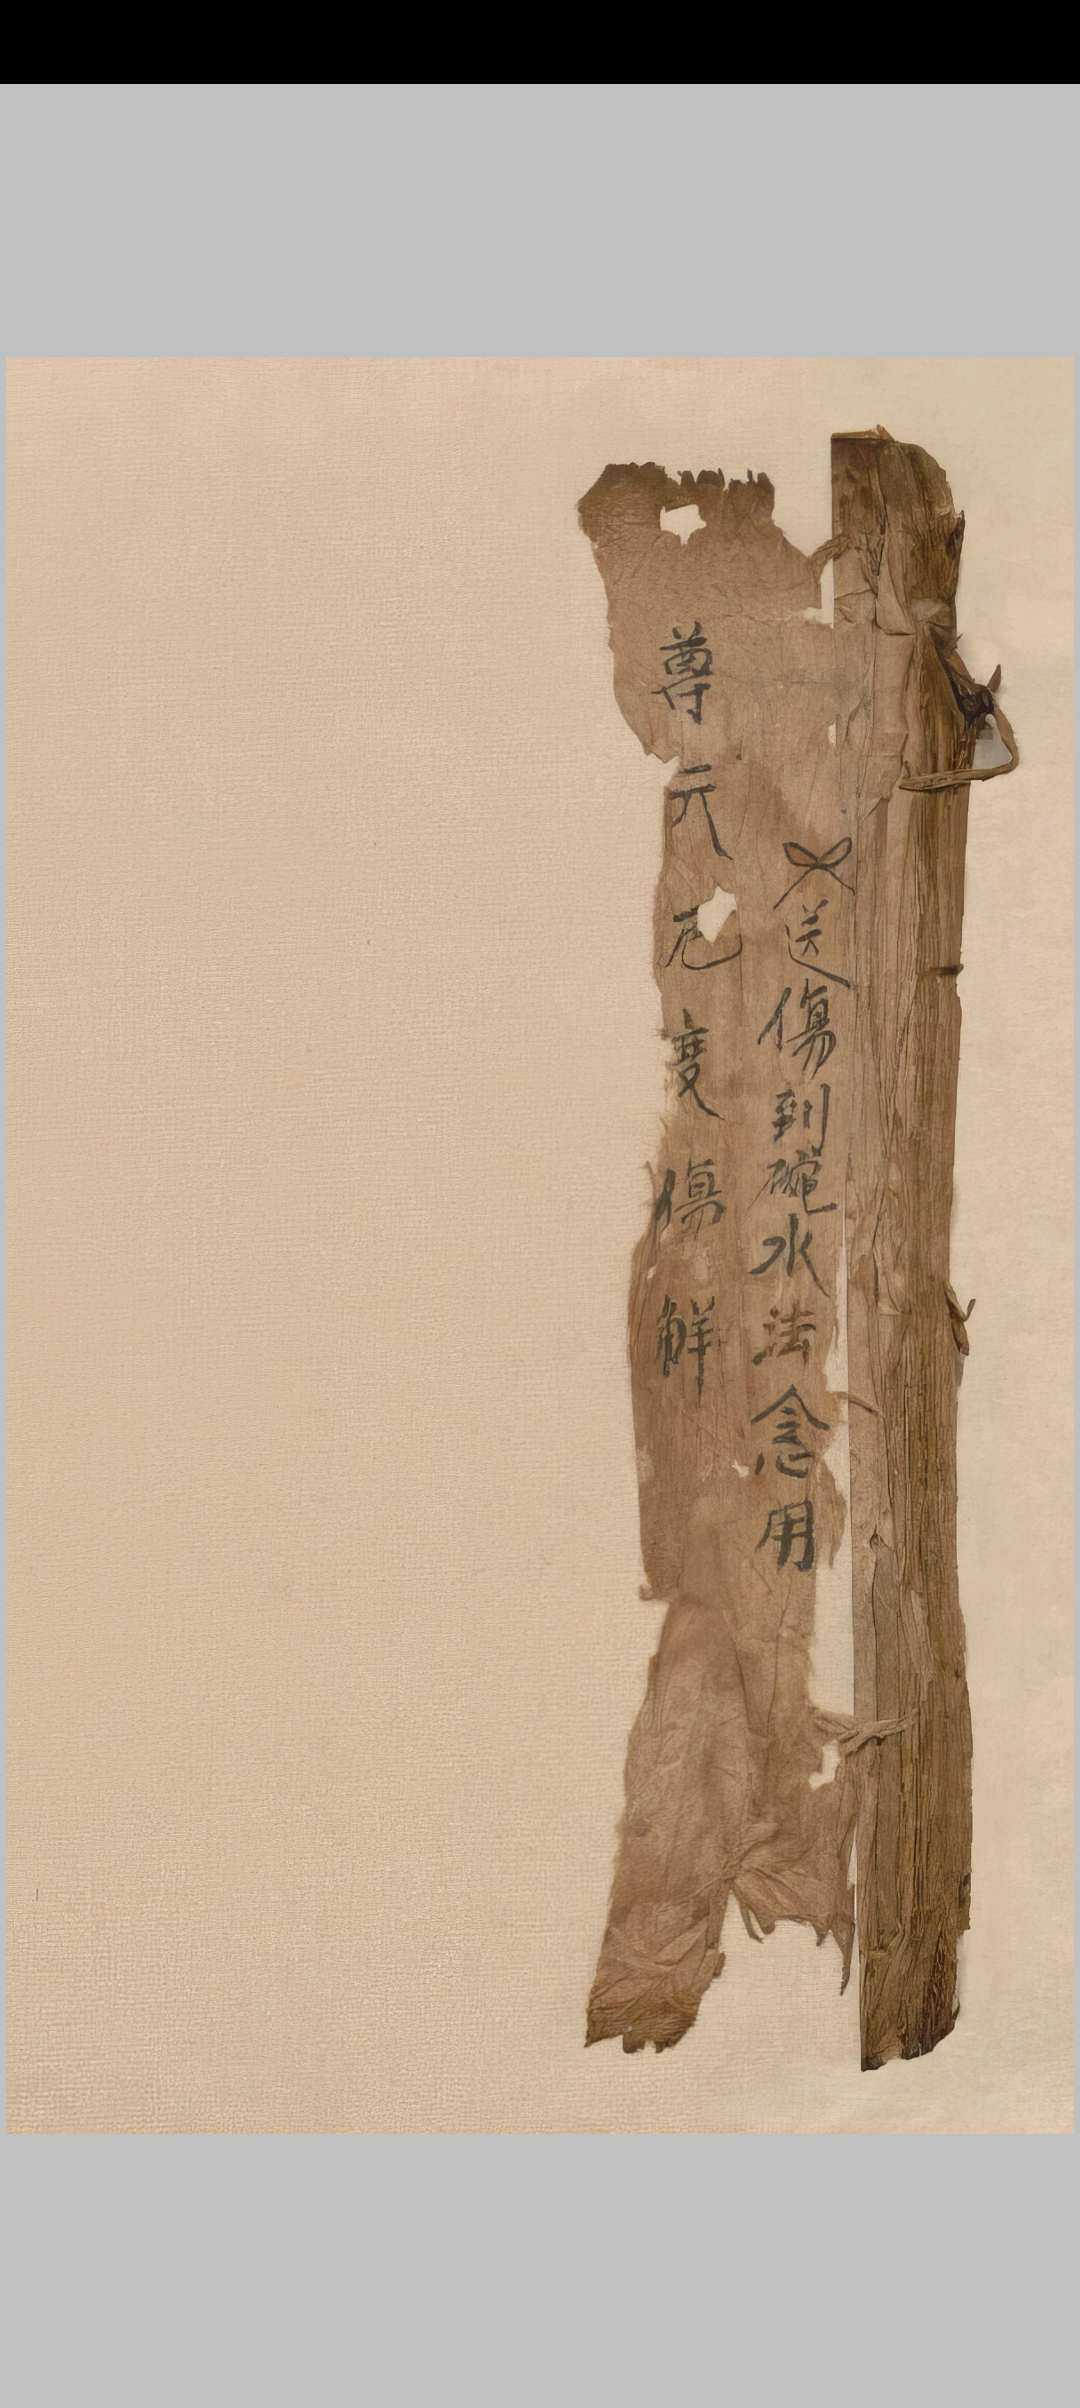 送傷到碗水法念用
尊元厄度傷解